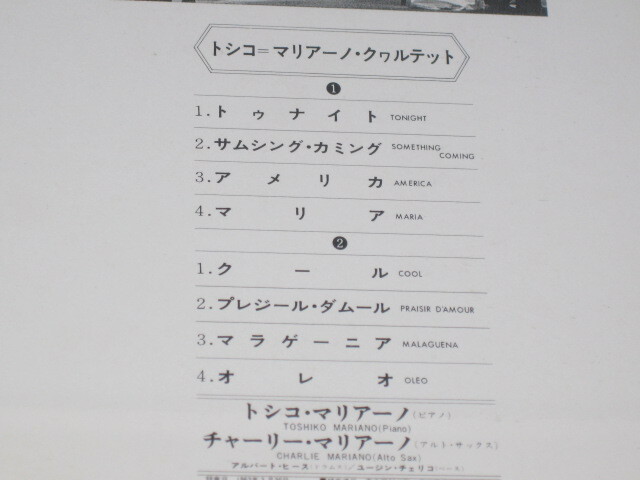 トシコ=マリアーノ・クヮルテット
❶
1.トゥナイト TONIGHT
2.サムシング・カミング SOMETHING COMING
3.アメリカ AMERICA
4.マリア MARIA
❷
1.クール COOL
2.プレジール・ダムール PRAISIR D'AMOUR
3.マラゲーニア MALAGUENA
4.オレオ OLEO
トシコ・マリアーノ(ピアノ)
TOSHIKO MARIANO(Piano)
チャーリー・マリアーノ(アルト・サックス)
CHARLIE MARIANO(Alto Sax)
アルバート・ヒース(ドラムス)/ユージン・チェリコ(ベース)